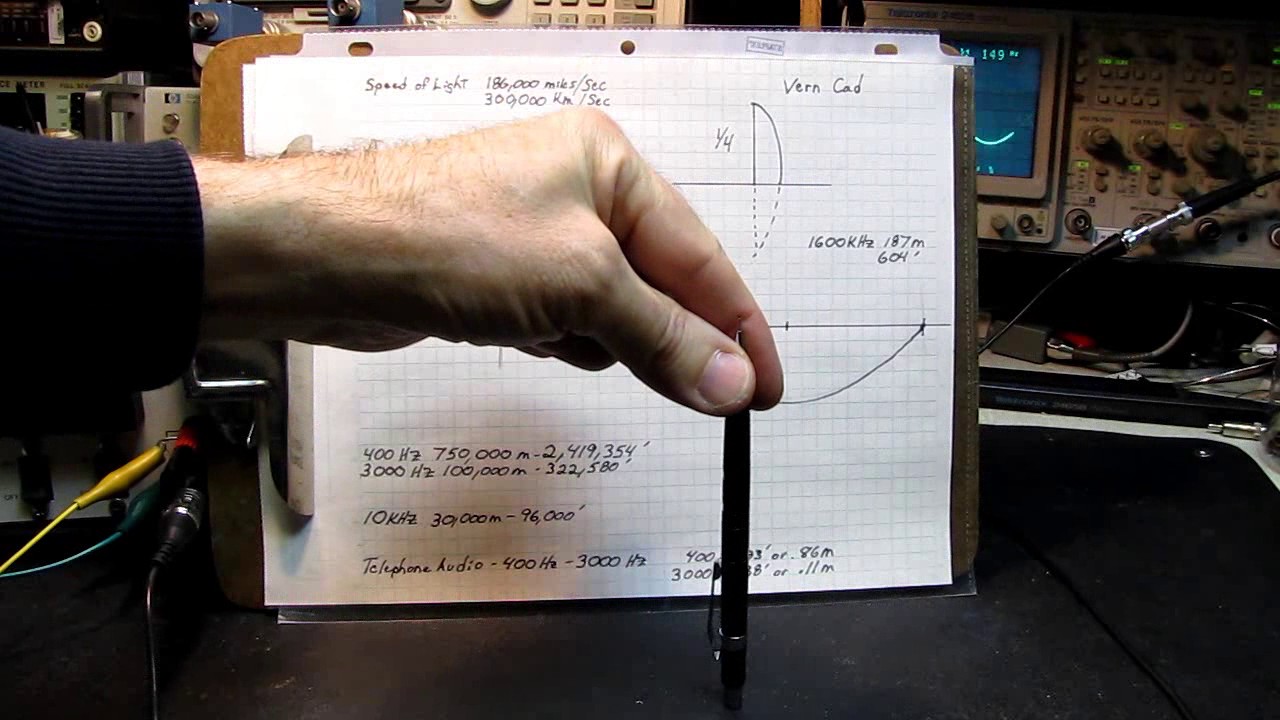 Tektronix
149 Hz
hp
Speed of Light 186,000 miles/Sec
300,000 Km/Sec
Vern Cad
1/4
1600KHz 187m
604'
400 Hz 750,000 m-2,419,354'
3000 Hz 100,000m - 322,580'
10KHz 30,000m - 96,000'
Telephone Audio - 400Hz - 3000 Hz
400 93' or .86m
3000 38' or .11m
Tektronix 2465B
OFF